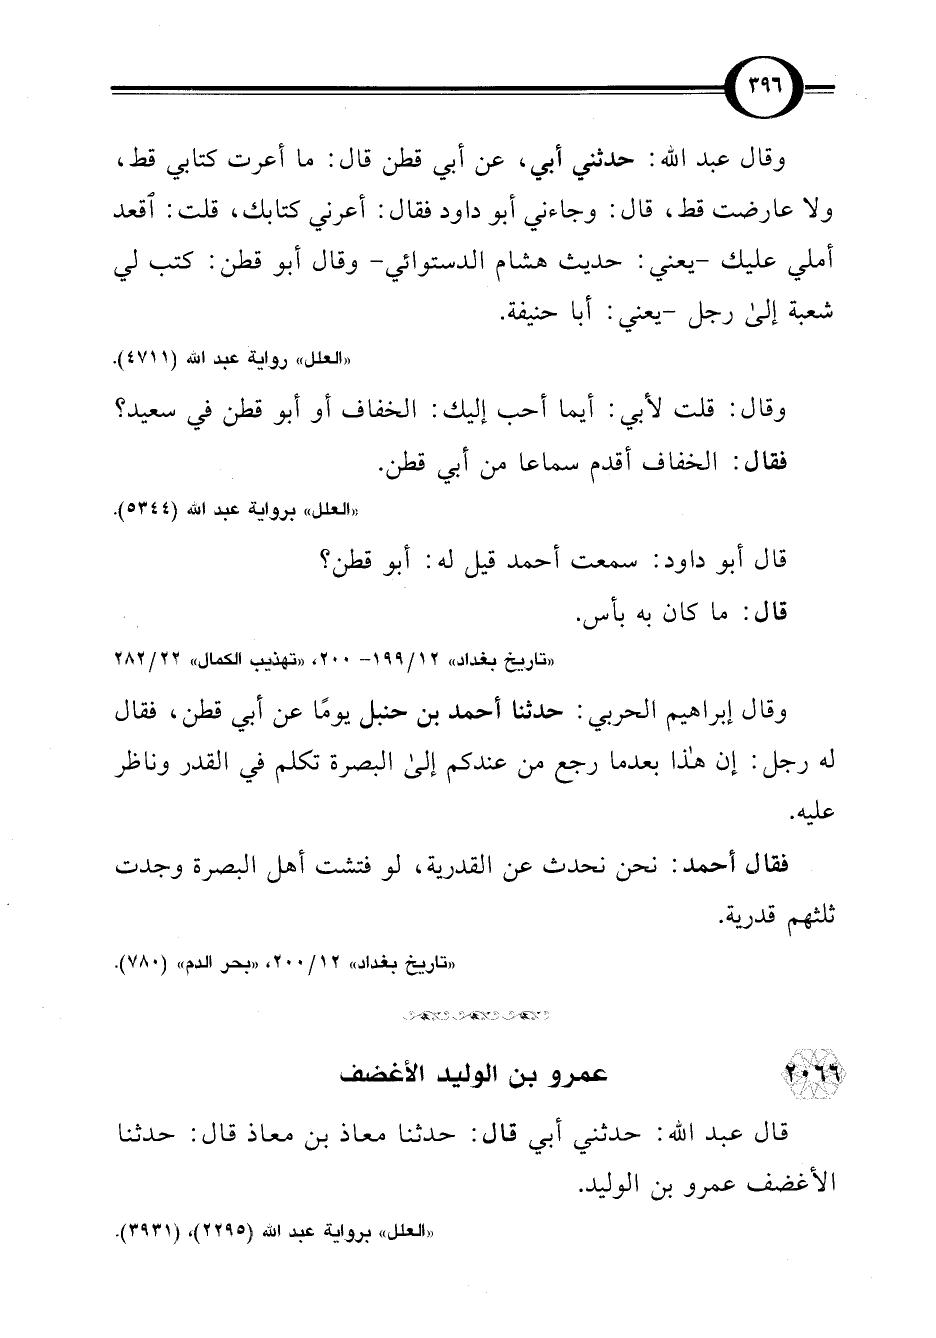 ٣٩٦
وقال عبد الله: حدثني أبي، عن أبي قطن قال: ما أعرت كتابي قط،
ولا عارضت قط، قال: وجاءني أبو داود فقال: أعرني كتابك، قلت: ٱقعد
أملي عليك -يعني: حديث هشام الدستوائي- وقال أبو قطن: كتب لي
شعبة إلىٰ رجل -يعني: أبا حنيفة.
«العلل» رواية عبد الله (٤٧١١).
وقال: قلت لأبي: أيما أحب إليك: الخفاف أو أبو قطن في سعيد؟
فقال: الخفاف أقدم سماعا من أبي قطن.
«العلل» برواية عبد الله (٥٣٤٤).
قال أبو داود: سمعت أحمد قيل له: أبو قطن؟
قال: ما كان به بأس.
«تاريخ بغداد» ١٢/ ١٩٩- ٢٠٠، «تهذيب الكمال» ٢٢/ ٢٨٢
وقال إبراهيم الحربي: حدثنا أحمد بن حنبل يومًا عن أبي قطن، فقال
له رجل: إن هذا بعدما رجع من عندكم إلىٰ البصرة تكلم في القدر وناظر
عليه.
فقال أحمد: نحن نحدث عن القدرية، لو فتشت أهل البصرة وجدت
ثلثهم قدرية.
«تاريخ بغداد» ١٢/ ٢٠٠، «بحر الدم» (٧٨٠).
٢٠٦٦ عمرو بن الوليد الأغضف
قال عبد الله: حدثني أبي قال: حدثنا معاذ بن معاذ قال: حدثنا
الأغضف عمرو بن الوليد.
«العلل» برواية عبد الله (٢٢٩٥)، (٣٩٣١).